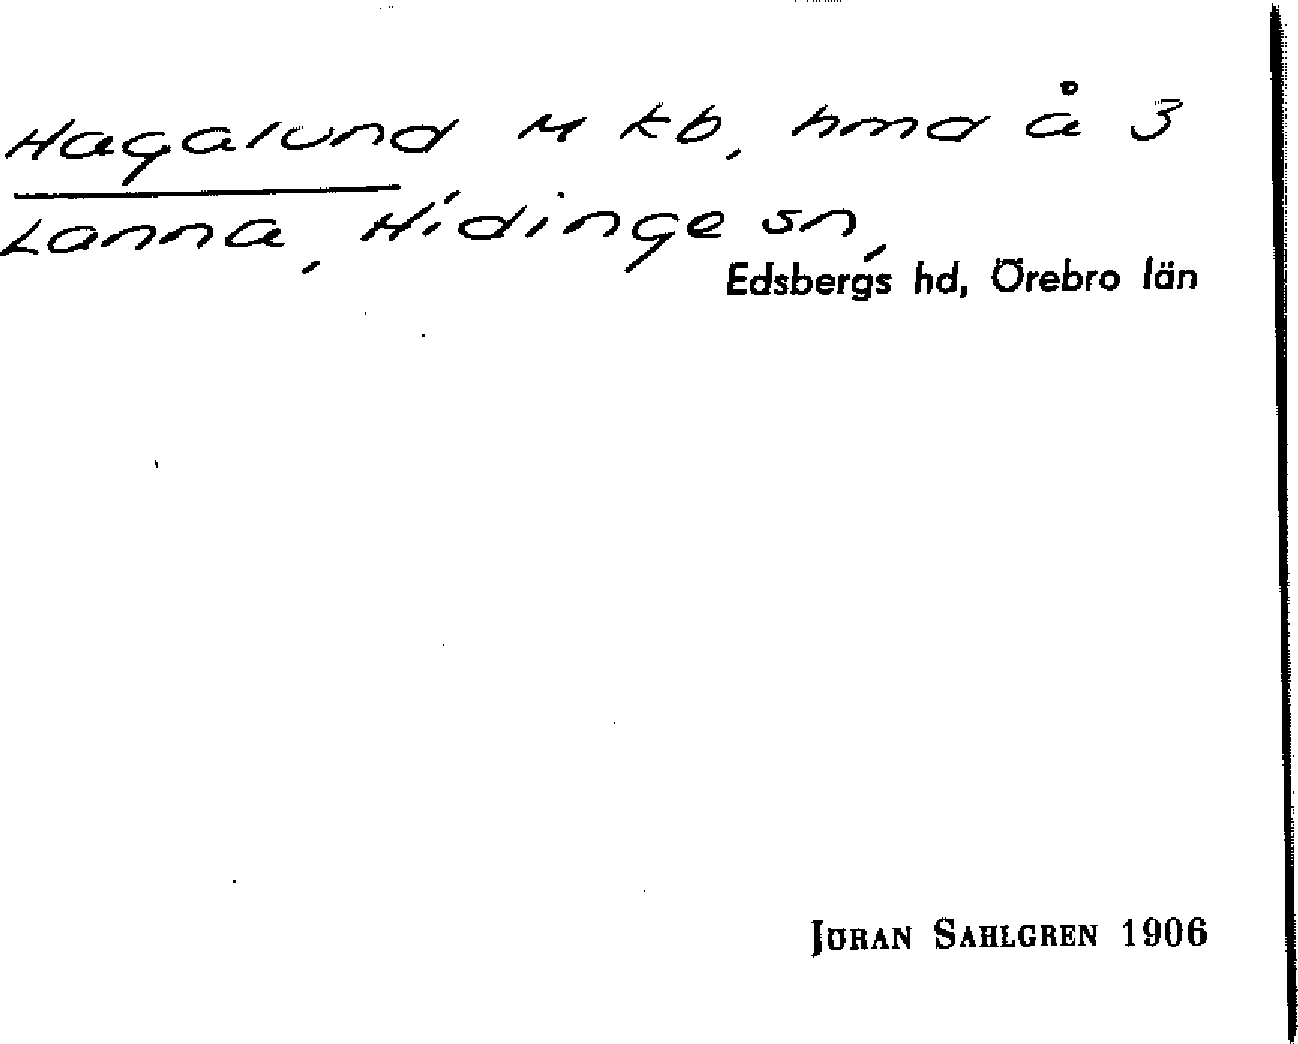 Hagalund M kb, hmd å 3
Lanna, Hidinge sn,
Edsbergs hd, Örebro län
JÖRAN SAHLGREN 1906